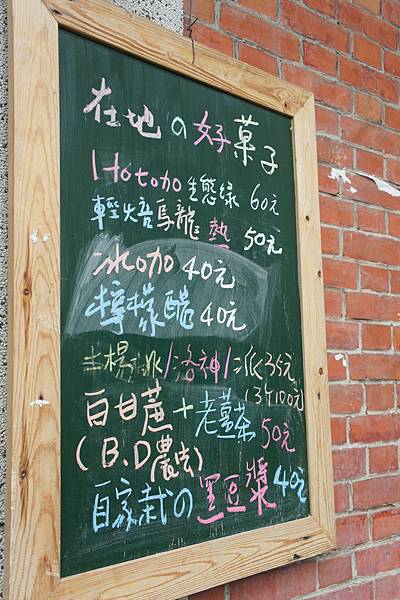 在地の好菓子
Hotcho 生態綠 60元
輕焙烏龍 熱 50元
冰咖 40元
檸檬醋 40元
土楊桃/洛神/派35元
(3片100元)
白甘蔗+老薑茶 50元
(B.D農法)
自家栽の黑豆漿 40元